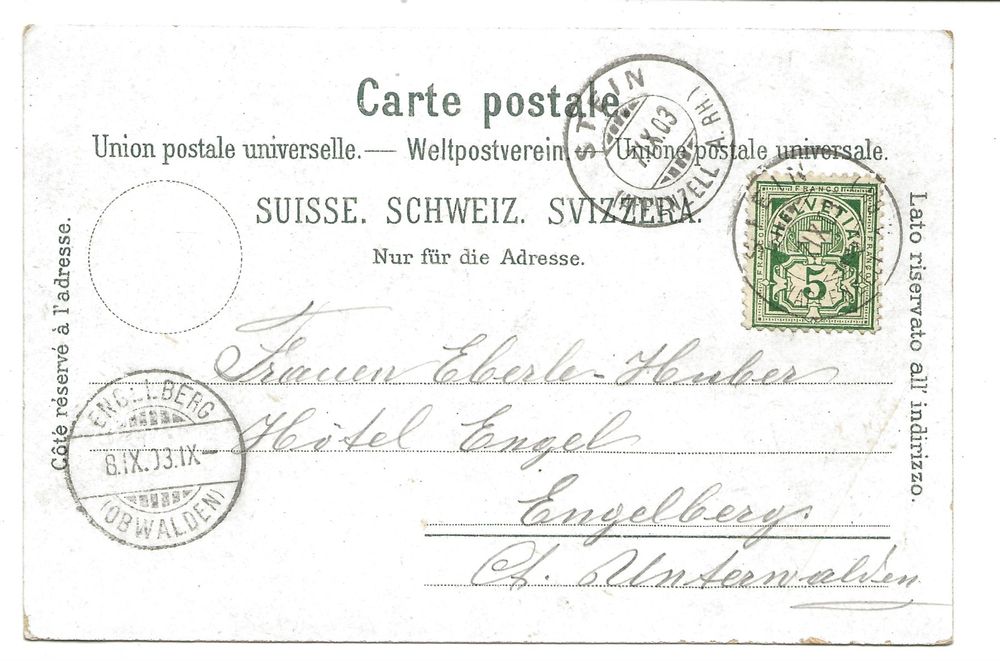 Carte postale.
Union postale universelle. — Weltpostverein. — Unione postale universale.
SUISSE. SCHWEIZ. SVIZZERA.
Nur für die Adresse.
Côté réservé à l'adresse.
Lato riservato all' indirizzo.
STEIN
7.IX.03
(APPENZELL A. RH.)
FRANCO
HELVETIA
5
FRANCO
FRANCO
Frauen Eberle-Huber
Hôtel Engel
Engelberg.
Ct. Unterwalden
ENGELBERG
8.IX.03.IX—
(OBWALDEN)